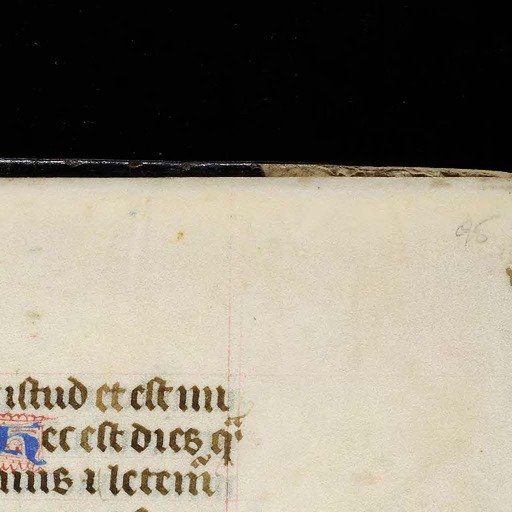 96
istud et est mi
Hec est dies q̃
mus ⁊ letem̃